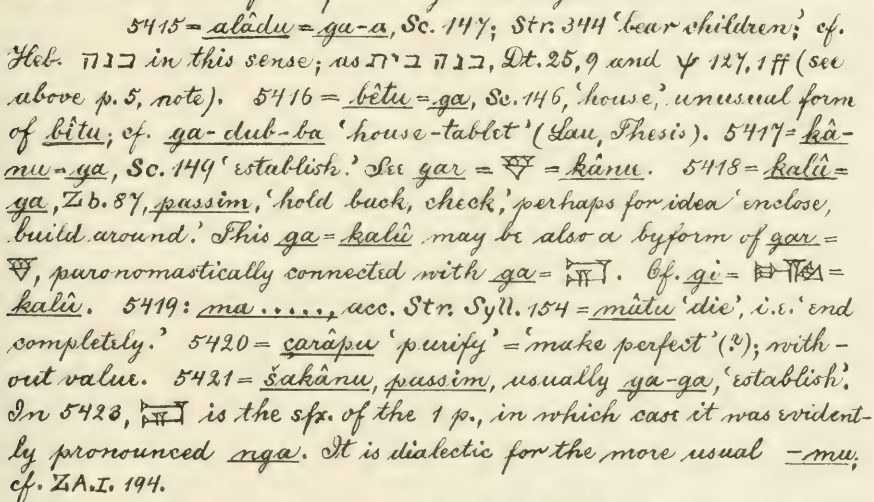 5415 = alâdu = ga-a, Sc. 147; Str. 344 ‘bear children’; cf.
Heb. בנה in this sense; as בנה בית, Dt. 25,9 and ψ 127,1ff (see
above p. 5, note). 5416 = bêtu = ga, Sc. 146, ‘house’, unusual form
of bîtu; cf. ga-dub-ba ‘house-tablet’ (Lau, Thesis). 5417 = kâ-
nu = ga, Sc. 149 ‘establish.’ See gar = 𒃻 = kânu. 5418 = kalû =
ga, Zb. 87, passim, ‘hold back, check,’ perhaps for idea ‘enclose,
build around.’ This ga = kalû may be also a byform of gar =
𒃻, paronomastically connected with ga = 𒂷. Cf. gi = =
kalû. 5419: ma....., acc. Str. Syll. 154 = mâtu ‘die’, i.e. ‘end
completely.’ 5420 = çarâpu ‘purify’ = ‘make perfect’ (?); with-
out value. 5421 = šakânu, passim, usually ga-ga, ‘establish’.
In 5423, 𒂷 is the sfx. of the 1 p., in which case it was evident-
ly pronounced nga. It is dialectic for the more usual -mu;
cf. ZA. I. 194.